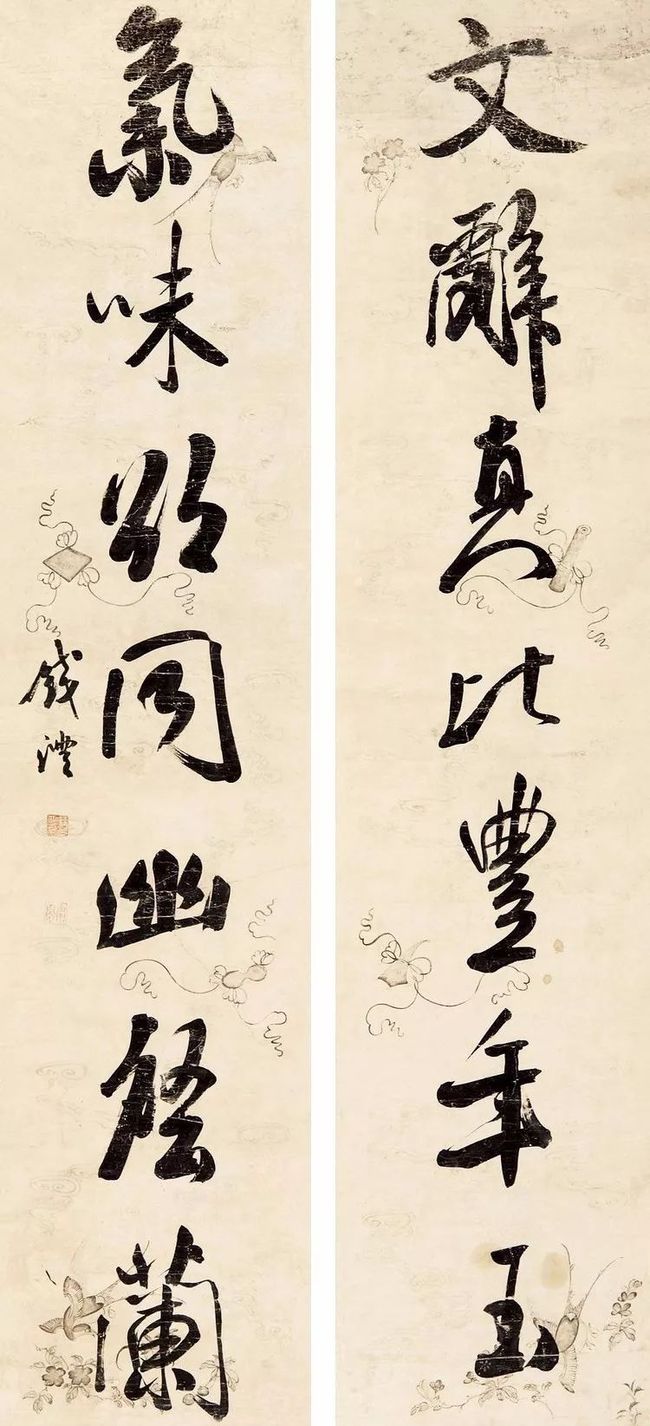 文辭真比豐年玉
氣味卻同幽徑蘭
錢灃